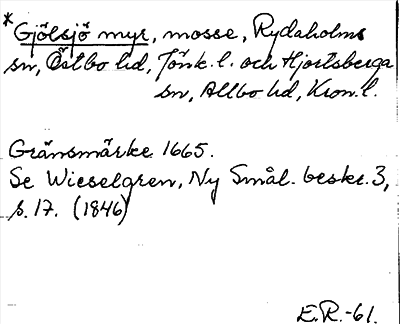 * Gjölsjö myr, mosse, Rydaholms
sn, Östbo hd, Jönk. l. och Hjortsberga
sn, Allbo hd, Kron. l.
Gränsmärke 1665.
Se Wieselgren, Ny Smål. beskr. 3,
s. 17. (1846)
E.R.-61.